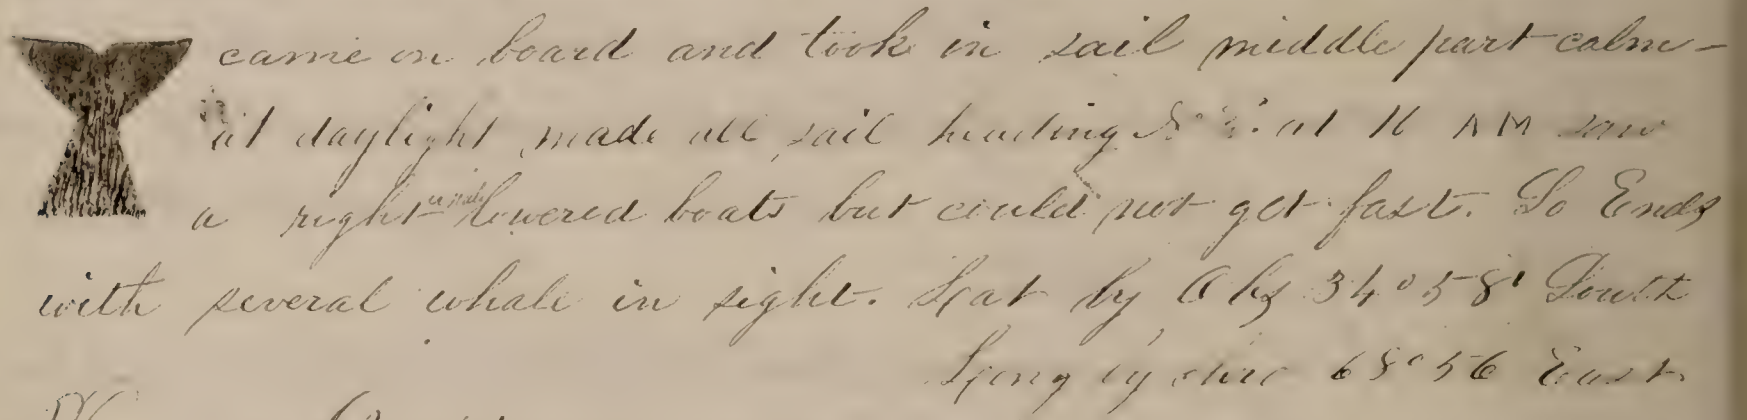 came on board and took in sail middle part calm -
at daylight made all sail heading at 11 AM saw
a right whale lowered boats but could not get fast. So Ends
with several whale in sight. Lat by Obs 34° 58' South
Long by chro 68° 56 East